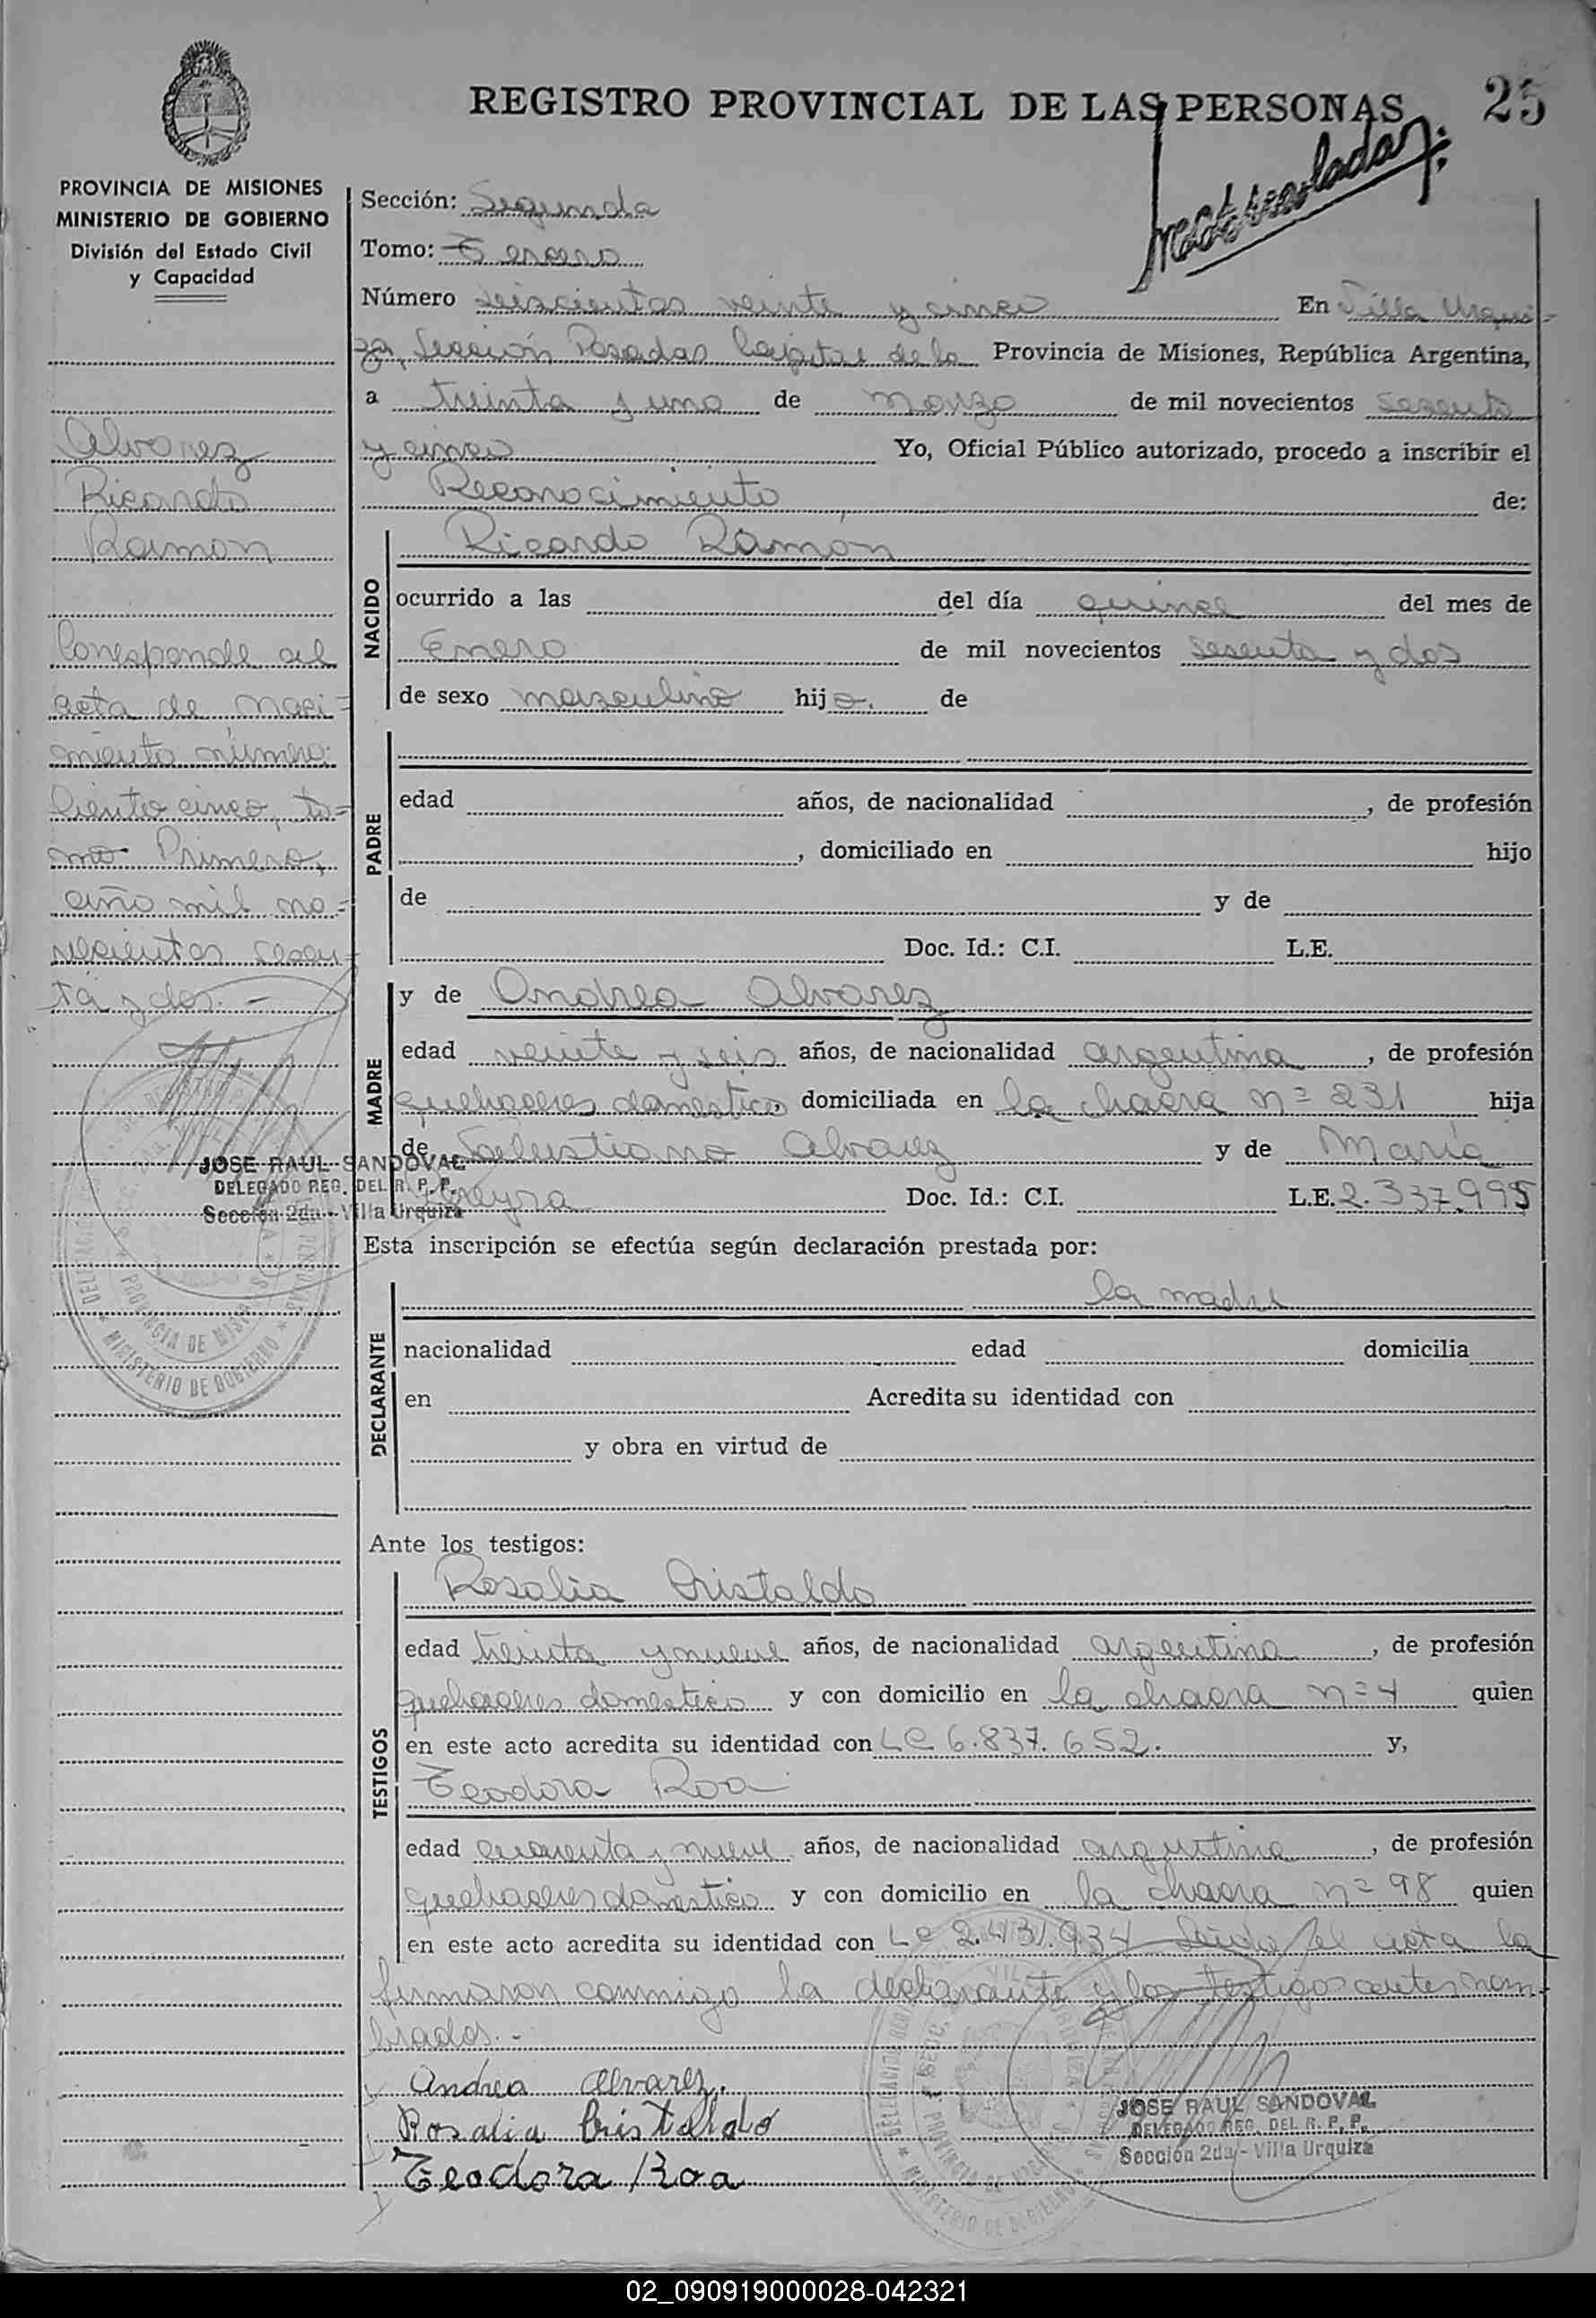 REGISTRO PROVINCIAL DE LAS PERSONAS 25
PROVINCIA DE MISIONES
MINISTERIO DE GOBIERNO
División del Estado Civil
y Capacidad
Alvarez
Ricardo
Ramon
Corresponde al
acta de naci-
miento número:
Ciento cinco, to-
mo Primero,
año mil no-
vecientos sesen-
ta y dos. -
JOSE RAUL SANDOVAL
DELEGADO REG. DEL R. P. P.
Sección 2da - Villa Urquiza
Sección: Segunda
Tomo: Tercero
Número seiscientos veinte y cinco En Villa Urqui-
za, Sección Posadas Capital de la Provincia de Misiones, República Argentina,
a treinta y uno de Marzo de mil novecientos sesenta
y cinco Yo, Oficial Público autorizado, procedo a inscribir el
Reconocimiento de:
NACIDO
Ricardo Ramón
ocurrido a las del día quince del mes de
Enero de mil novecientos sesenta y dos
de sexo masculino hijo. de
PADRE
edad años, de nacionalidad , de profesión
, domiciliado en hijo
de y de
Doc. Id.: C.I. L.E.
MADRE
y de Andrea Alvarez
edad veinte y seis años, de nacionalidad argentina, de profesión
quehaceres domestico, domiciliada en la chacra nº 231 hija
de Alvarez y de María
Doc. Id.: C.I. L.E. 2.337.995
Esta inscripción se efectúa según declaración prestada por:
DECLARANTE
la madre
nacionalidad edad domicilia
en Acredita su identidad con
y obra en virtud de
Ante los testigos:
TESTIGOS
Rosalia Cristaldo
edad treinta y nueve años, de nacionalidad argentina, de profesión
quehaceres domestico y con domicilio en la chacra nº 4 quien
en este acto acredita su identidad con LC 6.837.652. y,
Teodora Roa
edad cuarenta y nueve años, de nacionalidad argentina, de profesión
quehaceres domestico y con domicilio en la chacra nº 98 quien
en este acto acredita su identidad con LC 2.431.934 Leída el acta la
firmaron conmigo la declarante y los testigos antes nom-
brados. -
Andrea Alvarez.
Rosalia Cristaldo
Teodora Roa
JOSE RAUL SANDOVAL
DELEGADO REG. DEL R. P. P.
Sección 2da - Villa Urquiza
02_090919000028-042321